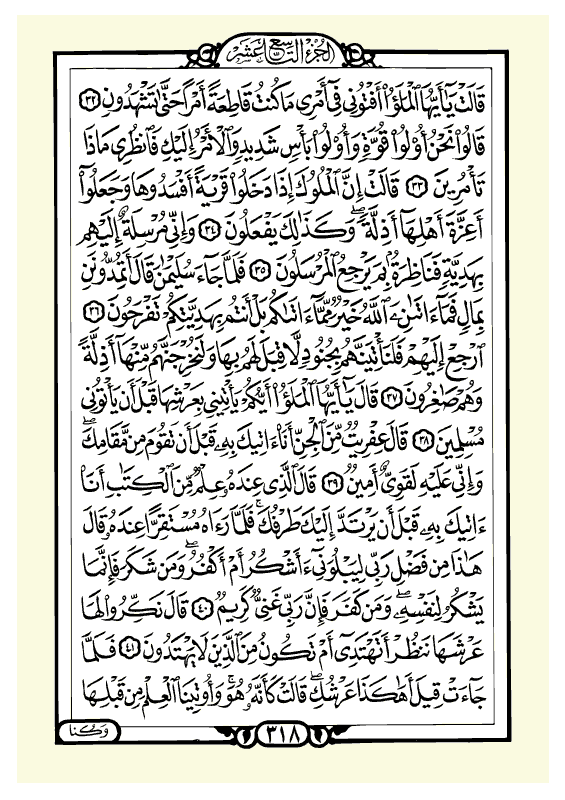 الجزء التاسع عشر
قَالَتْ يَٰٓأَيُّهَا ٱلْمَلَؤُا۟ أَفْتُونِى فِىٓ أَمْرِى مَا كُنتُ قَاطِعَةً أَمْرًا حَتَّىٰ تَشْهَدُونِ ٣٢
قَالُوا۟ نَحْنُ أُو۟لُوا۟ قُوَّةٍ وَأُو۟لُوا۟ بَأْسٍ شَدِيدٍ وَٱلْأَمْرُ إِلَيْكِ فَٱنظُرِى مَاذَا
تَأْمُرِينَ ٣٣ قَالَتْ إِنَّ ٱلْمُلُوكَ إِذَا دَخَلُوا۟ قَرْيَةً أَفْسَدُوهَا وَجَعَلُوٓا۟
أَعِزَّةَ أَهْلِهَآ أَذِلَّةً ۖ وَكَذَٰلِكَ يَفْعَلُونَ ٣٤ وَإِنِّى مُرْسِلَةٌ إِلَيْهِم
بِهَدِيَّةٍ فَنَاظِرَةٌۢ بِمَ يَرْجِعُ ٱلْمُرْسَلُونَ ٣٥ فَلَمَّا جَآءَ سُلَيْمَٰنَ قَالَ أَتُمِدُّونَنِ
بِمَالٍ فَمَآ ءَاتَىٰنِۦَ ٱللَّهُ خَيْرٌ مِّمَّآ ءَاتَىٰكُم بَلْ أَنتُم بِهَدِيَّتِكُمْ تَفْرَحُونَ ٣٦
ٱرْجِعْ إِلَيْهِمْ فَلَنَأْتِيَنَّهُم بِجُنُودٍ لَّا قِبَلَ لَهُم بِهَا وَلَنُخْرِجَنَّهُم مِّنْهَآ أَذِلَّةً
وَهُمْ صَٰغِرُونَ ٣٧ قَالَ يَٰٓأَيُّهَا ٱلْمَلَؤُا۟ أَيُّكُمْ يَأْتِينِى بِعَرْشِهَا قَبْلَ أَن يَأْتُونِى
مُسْلِمِينَ ٣٨ قَالَ عِفْرِيتٌ مِّنَ ٱلْجِنِّ أَنَا۠ ءَاتِيكَ بِهِۦ قَبْلَ أَن تَقُومَ مِن مَّقَامِكَ ۖ
وَإِنِّى عَلَيْهِ لَقَوِىٌّ أَمِينٌ ٣٩ قَالَ ٱلَّذِى عِندَهُۥ عِلْمٌ مِّنَ ٱلْكِتَٰبِ أَنَا۠
ءَاتِيكَ بِهِۦ قَبْلَ أَن يَرْتَدَّ إِلَيْكَ طَرْفُكَ ۚ فَلَمَّا رَءَاهُ مُسْتَقِرًّا عِندَهُۥ قَالَ
هَٰذَا مِن فَضْلِ رَبِّى لِيَبْلُوَنِىٓ ءَأَشْكُرُ أَمْ أَكْفُرُ ۖ وَمَن شَكَرَ فَإِنَّمَا
يَشْكُرُ لِنَفْسِهِۦ ۖ وَمَن كَفَرَ فَإِنَّ رَبِّى غَنِىٌّ كَرِيمٌ ٤٠ قَالَ نَكِّرُوا۟ لَهَا
عَرْشَهَا نَنظُرْ أَتَهْتَدِىٓ أَمْ تَكُونُ مِنَ ٱلَّذِينَ لَا يَهْتَدُونَ ٤١ فَلَمَّا
جَآءَتْ قِيلَ أَهَٰكَذَا عَرْشُكِ ۖ قَالَتْ كَأَنَّهُۥ هُوَ ۚ وَأُوتِينَا ٱلْعِلْمَ مِن قَبْلِهَا
وَكُنَّا
٣١٨